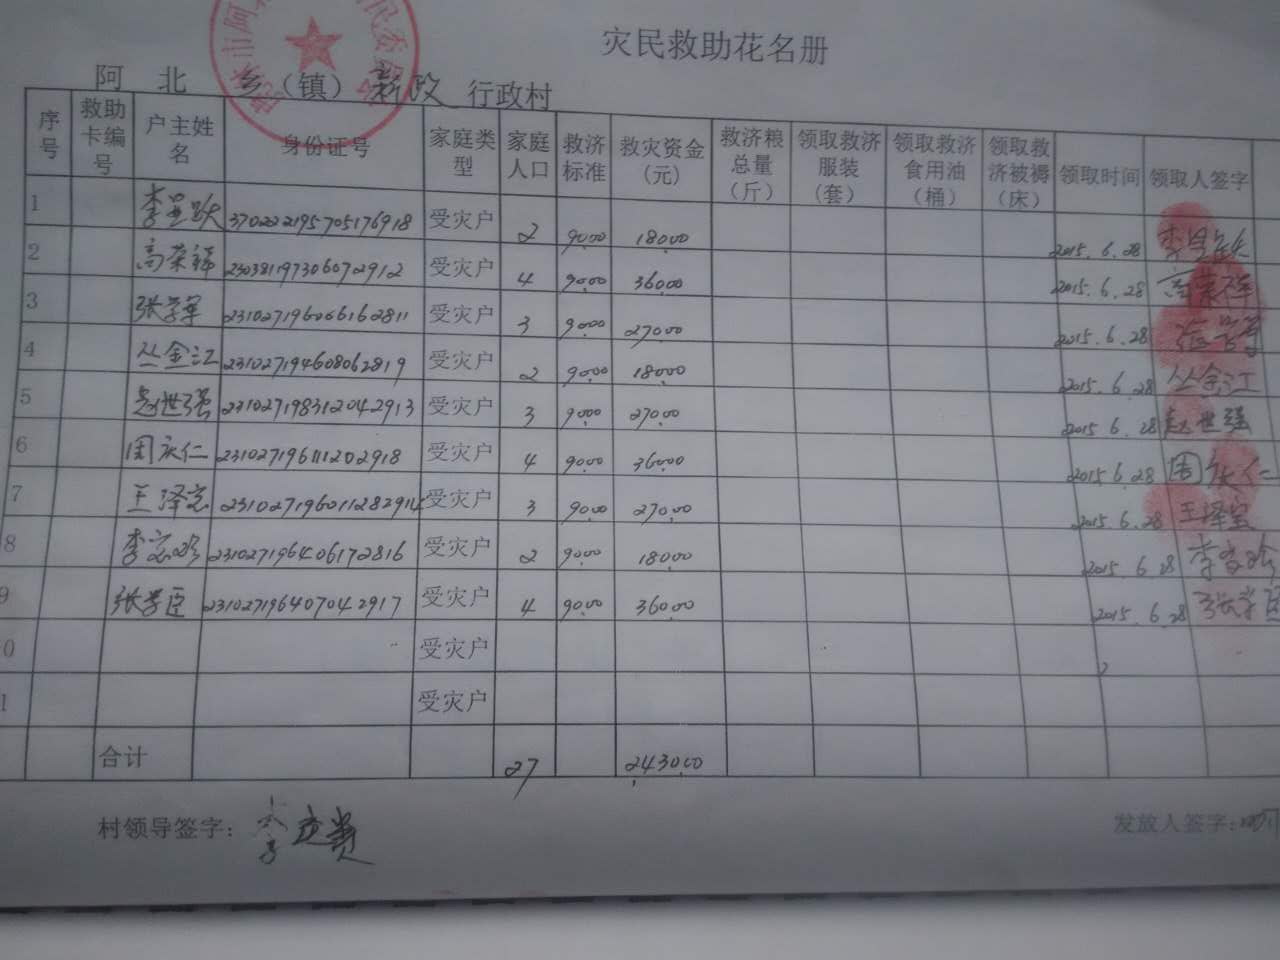 灾民救助花名册
阿北乡（镇）新政行政村
序号 救助卡编号 户主姓名 身份证号 家庭类型 家庭人口 救济标准 救灾资金（元） 救济粮总量（斤） 领取救济服装（套） 领取救济食用油（桶） 领取救济被褥（床） 领取时间 领取人签字
1 370222195705176918 受灾户 2 90.00 180.00 2015.6.28
2 高荣祥 230381197306072912 受灾户 4 90.00 360.00 2015.6.28 高荣祥
3 张学军 231027196066162811 受灾户 3 90.00 270.00 2015.6.28 张学军
4 丛金江 231027194608062819 受灾户 2 90.00 180.00 2015.6.28 丛金江
5 赵世强 231027198312042913 受灾户 3 90.00 270.00 2015.6.28 赵世强
6 周庆仁 231027196111202918 受灾户 4 90.00 360.00 2015.6.28 周庆仁
7 王泽宝 231027196011282914 受灾户 3 90.00 270.00 2015.6.28 王泽宝
8 231027196406172816 受灾户 2 90.00 180.00 2015.6.28
9 张学臣 231027196407042917 受灾户 4 90.00 360.00 2015.6.28 张学臣
0 受灾户
1 受灾户
合计 27 2430.00
村领导签字： 发放人签字：